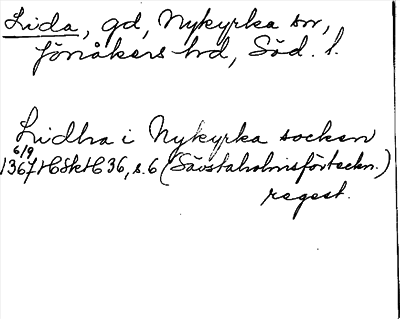 Lida, gd, Nykyrka sn,
Jönåkers hd, Söd. l.
Lidha i Nykyrka socken
6/9
1367 HSH HC 36, s. 6 (Sävstaholmsförteckn.)
regest.